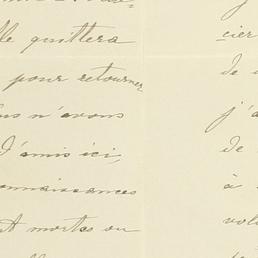 lle quittera
pour retourner
us n'avons
d'amis ici,
onnaissances
t mortes ou
cier
de
j'a
de
à
vol